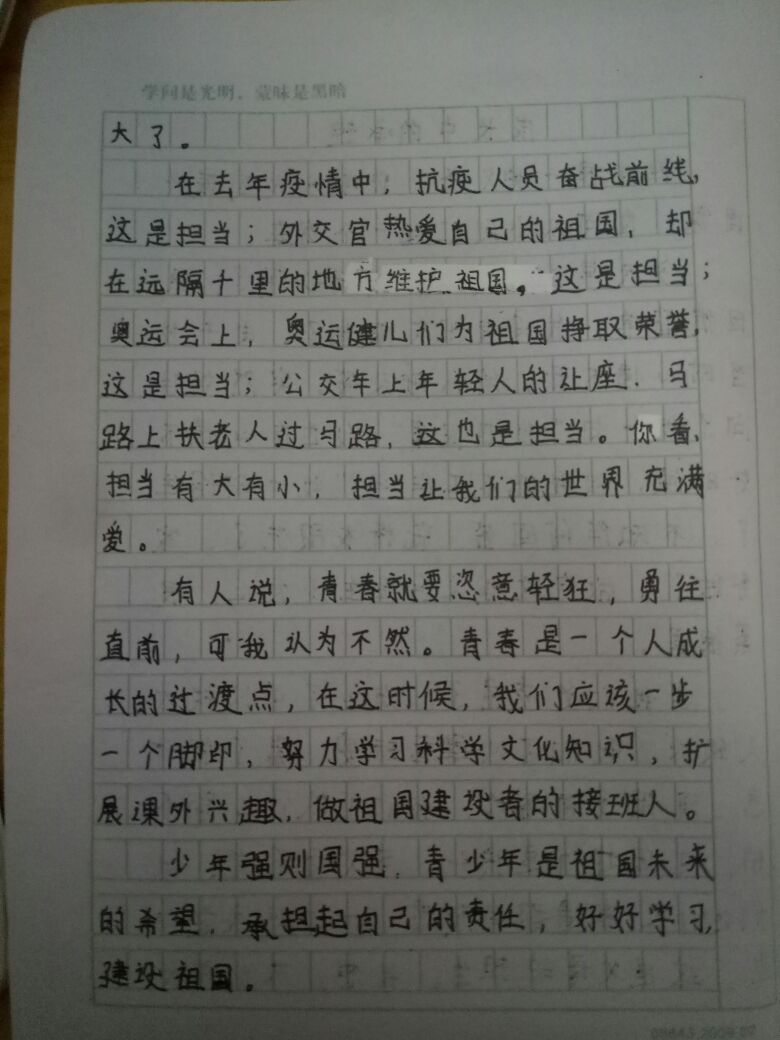 学问是光明，蒙昧是黑暗
大了。
在去年疫情中，抗疫人员奋战前线，
这是担当；外交官热爱自己的祖国，却
在远隔千里的地方维护祖国。这是担当；
奥运会上，奥运健儿们为祖国挣取荣誉，
这是担当；公交车上年轻人的让座．马
路上扶老人过马路，这也是担当。你看，
担当有大有小，担当让我们的世界充满
爱。
有人说，青春就要恣意轻狂，勇往
直前，可我认为不然。青春是一个人成
长的过渡点，在这时候，我们应该一步
一个脚印，努力学习科学文化知识，扩
展课外兴趣，做祖国建设者的接班人。
少年强则国强．青少年是祖国未来
的希望，承担起自己的责任，好好学习，
建设祖国。